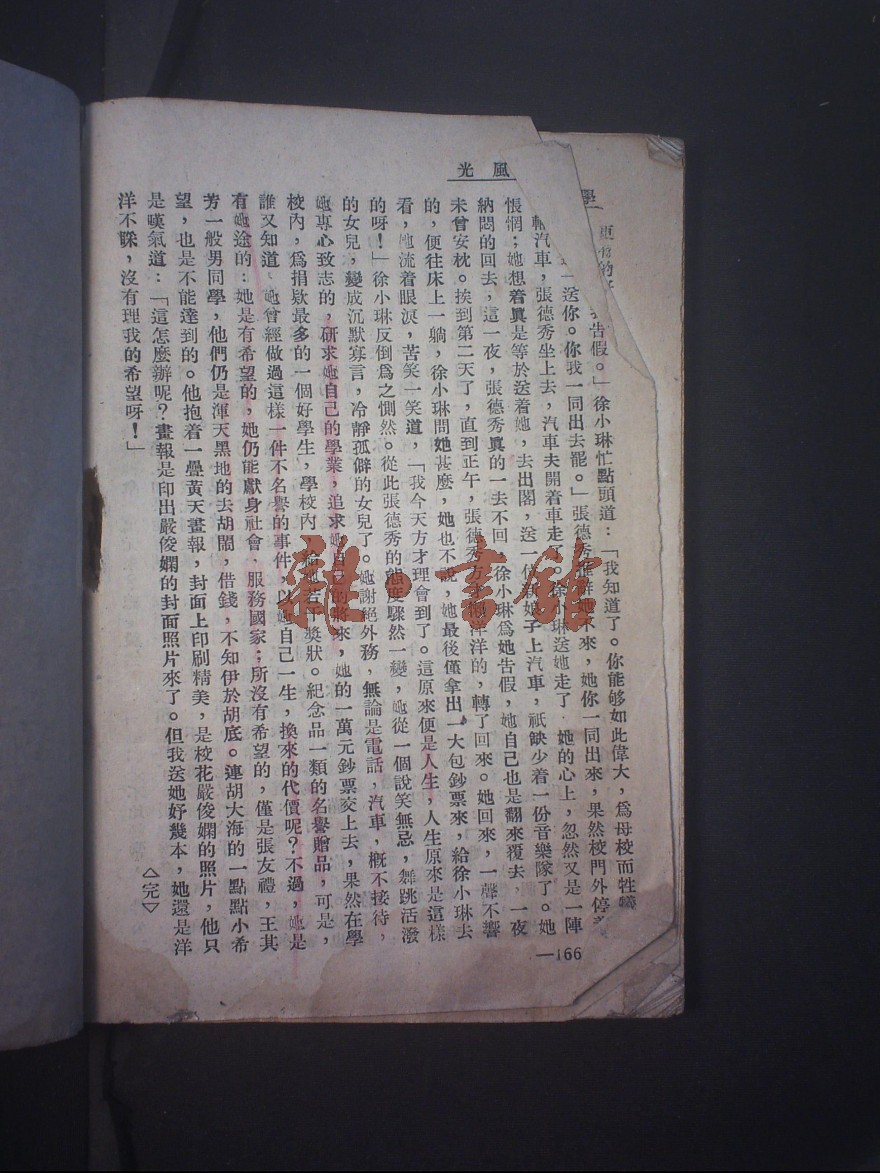 風光
告假。」徐小琳忙點頭道:「我知道了。你能够如此偉大,爲母校而牲犧
送你。你我一同出去罷。」張德秀推辭她不來,她你一同出來,果然校門外停
輛汽車,張德秀坐上去,汽車夫開着車走了,徐小琳送她走了,她的心上,忽然又是一陣
悵惘;她想着眞是等於送着她,去出閣,送一位新娘子上汽車,祇缺少着一份音樂隊了。她
納悶的回去,這一夜,張德秀眞的一去不回,徐小琳爲她告假,她自己也是翻來覆去,一夜
未曾安枕。挨到第二天了,直到正午,張德秀方才懶洋洋的,轉了回來。她回來,一聲不響
的,便往床上一躺,徐小琳問她甚麽,她也不說,她最後僅拿出一大包鈔票來,給徐小琳去
看,她流着眼淚,苦笑一笑道,「我今天方才理會到了。這原來便是人生,人生原來是這樣
的呀!」徐小琳反倒爲之惻然。從此張德秀的態度驟然一變,她從一個說笑無忌,舞跳活潑
的女兒,變成沉默寡言,冷靜孤僻的女兒了。她謝絕外務,無論是電話,汽車,槪不接待,
她專心致志的,研求她自己的學業,追求她自己的將來,她的一萬元鈔票交上去,果然在學
校內,爲捐欵最多的一個好學生,學校內,給她若干獎狀。紀念品一類的名譽贈品,可是,
誰又知道,她曾經做過這樣一件不名譽的事件,以她自己一生,換來的代價呢?不過,她是
有她途的:她是有希望的,她仍能獻身社會,服務國家;所沒有希望的,僅是張友禮,王其
芳一般男同學,他們仍是渾天黑地的去胡鬧,借錢,不知伊於胡底。連胡大海的一點點小希
望,也是不能達到的。他抱着一疊黃天畫報,封面上印刷精美,是校花嚴俊嫻的照片,他只
是嘆氣道:「這怎麼辦呢?畫報是印出嚴俊嫻的封面照片來了。但我送她好幾本,她還是洋
洋不睬,沒有理我的希望呀!」
△完▽
—166
雜·書館